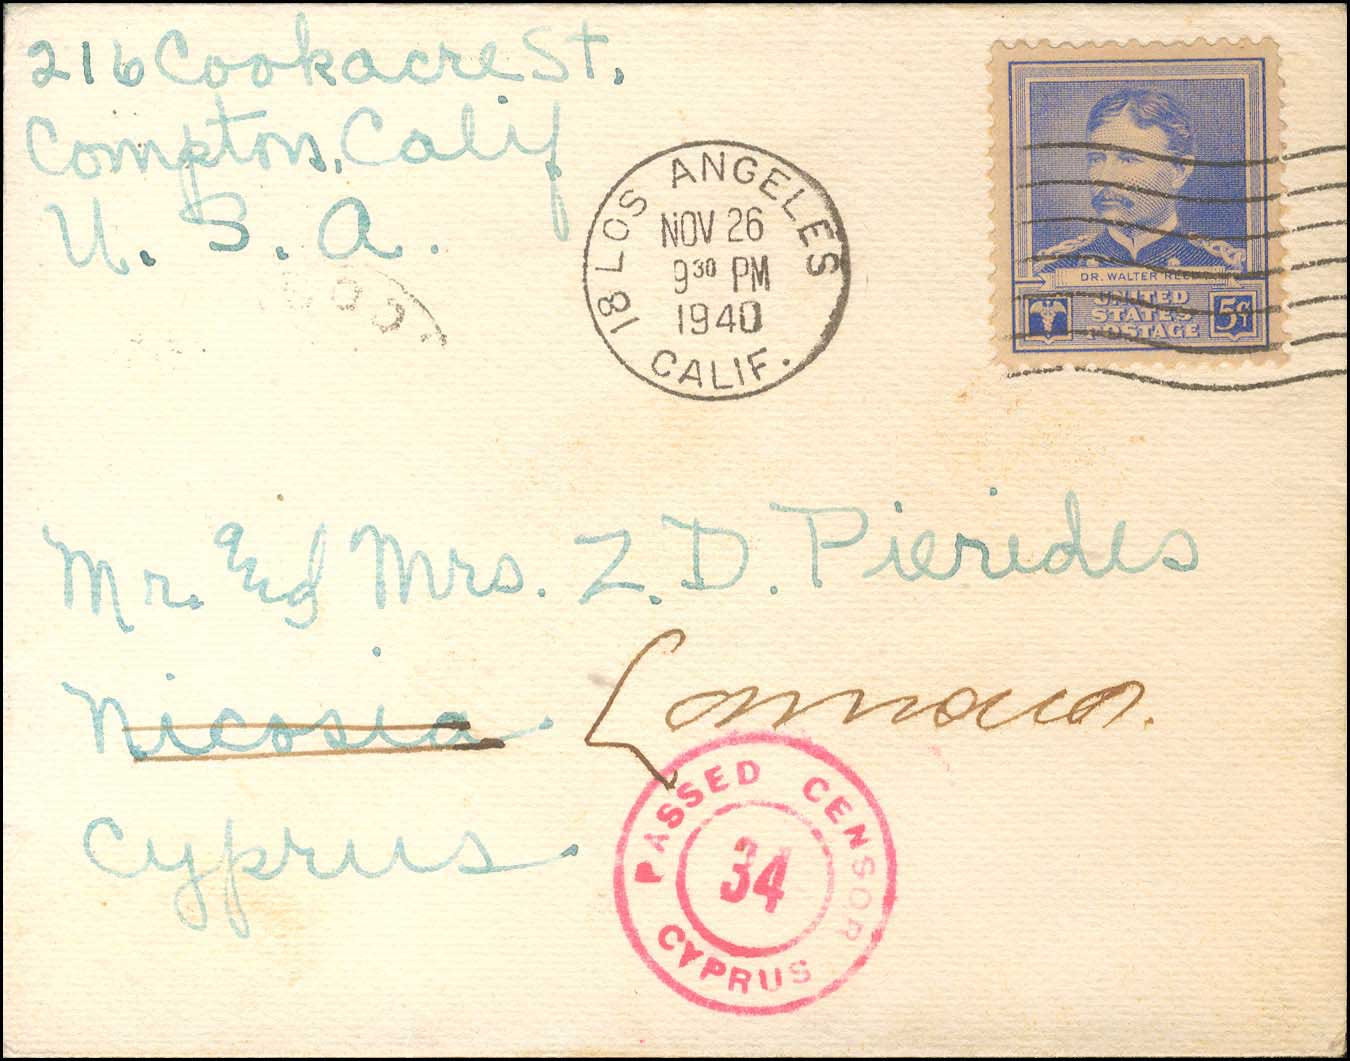 216 Cookacre St.
Compton, Calif
U. S. A.
18 LOS ANGELES
NOV 26
9 30 PM
1940
CALIF.
DR. WALTER REED
UNITED
STATES
POSTAGE
5¢
Mr. and Mrs. Z. D. Pierides
Nicosia. Larnaca.
Cyprus.
PASSED CENSOR
34
CYPRUS